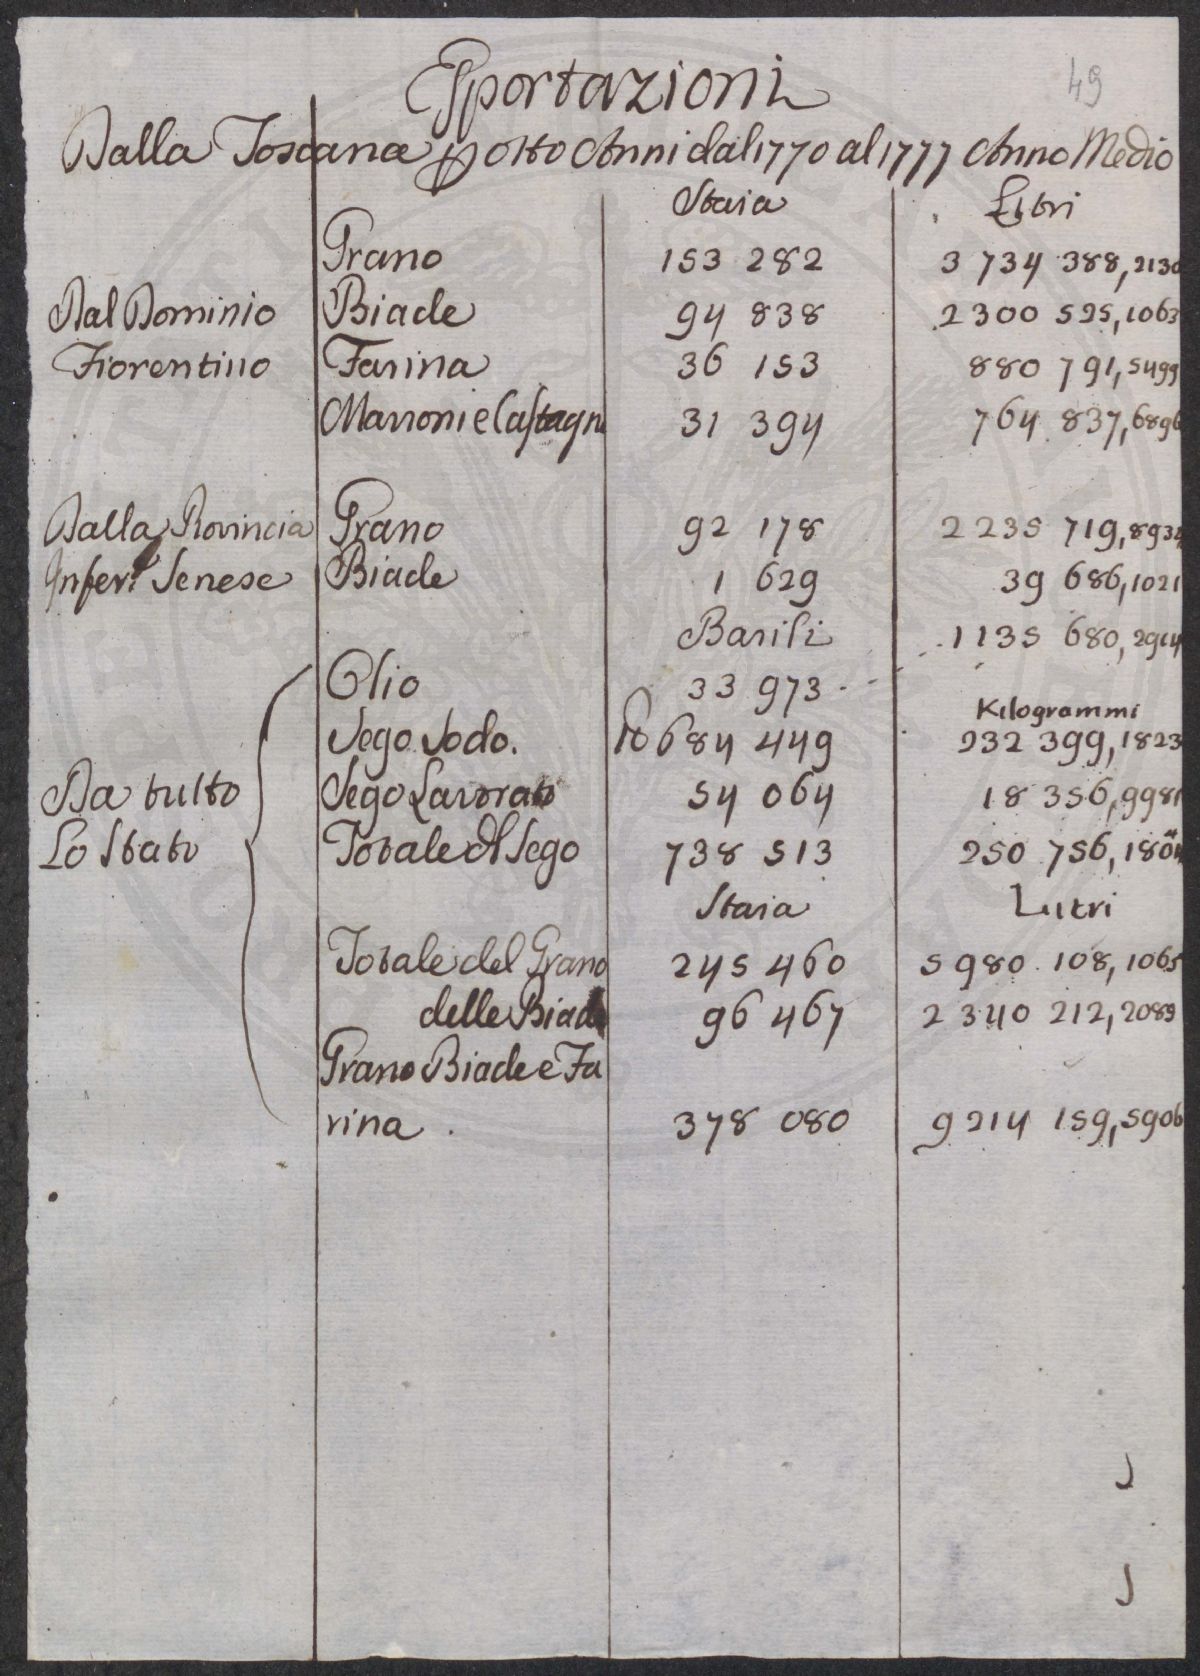 49
Esportazioni
Dalla Toscana p otto Anni dal 1770 al 1777 Anno Medio
Staia Litri
Grano 153 282 3 734 388,2130
Dal Dominio Biade 94 838 2300 525,1063
Fiorentino Farina 36 153 880 791,5499
Marroni e Castagn 31 394 764 837,6896
Dalla Provincia Grano 92 178 2235 719,8934
Infer. Senese Biade 1 629 39 686,1021
Barili 1135 680,2914
Olio 33 973
Kilogrammi
Sego Sodo. lb 684 449 232 399,1823
Da tutto Sego Lavorato 54 064 18 356,9981
Lo Stato Totale del Sego 738 513 250 756,1804
Staia Litri
Totale del Grano 245 460 5980 108,1065
delle Biade 96 467 2340 212,2089
Grano Biade e Fa
rina . 378 080 9214 159,5906